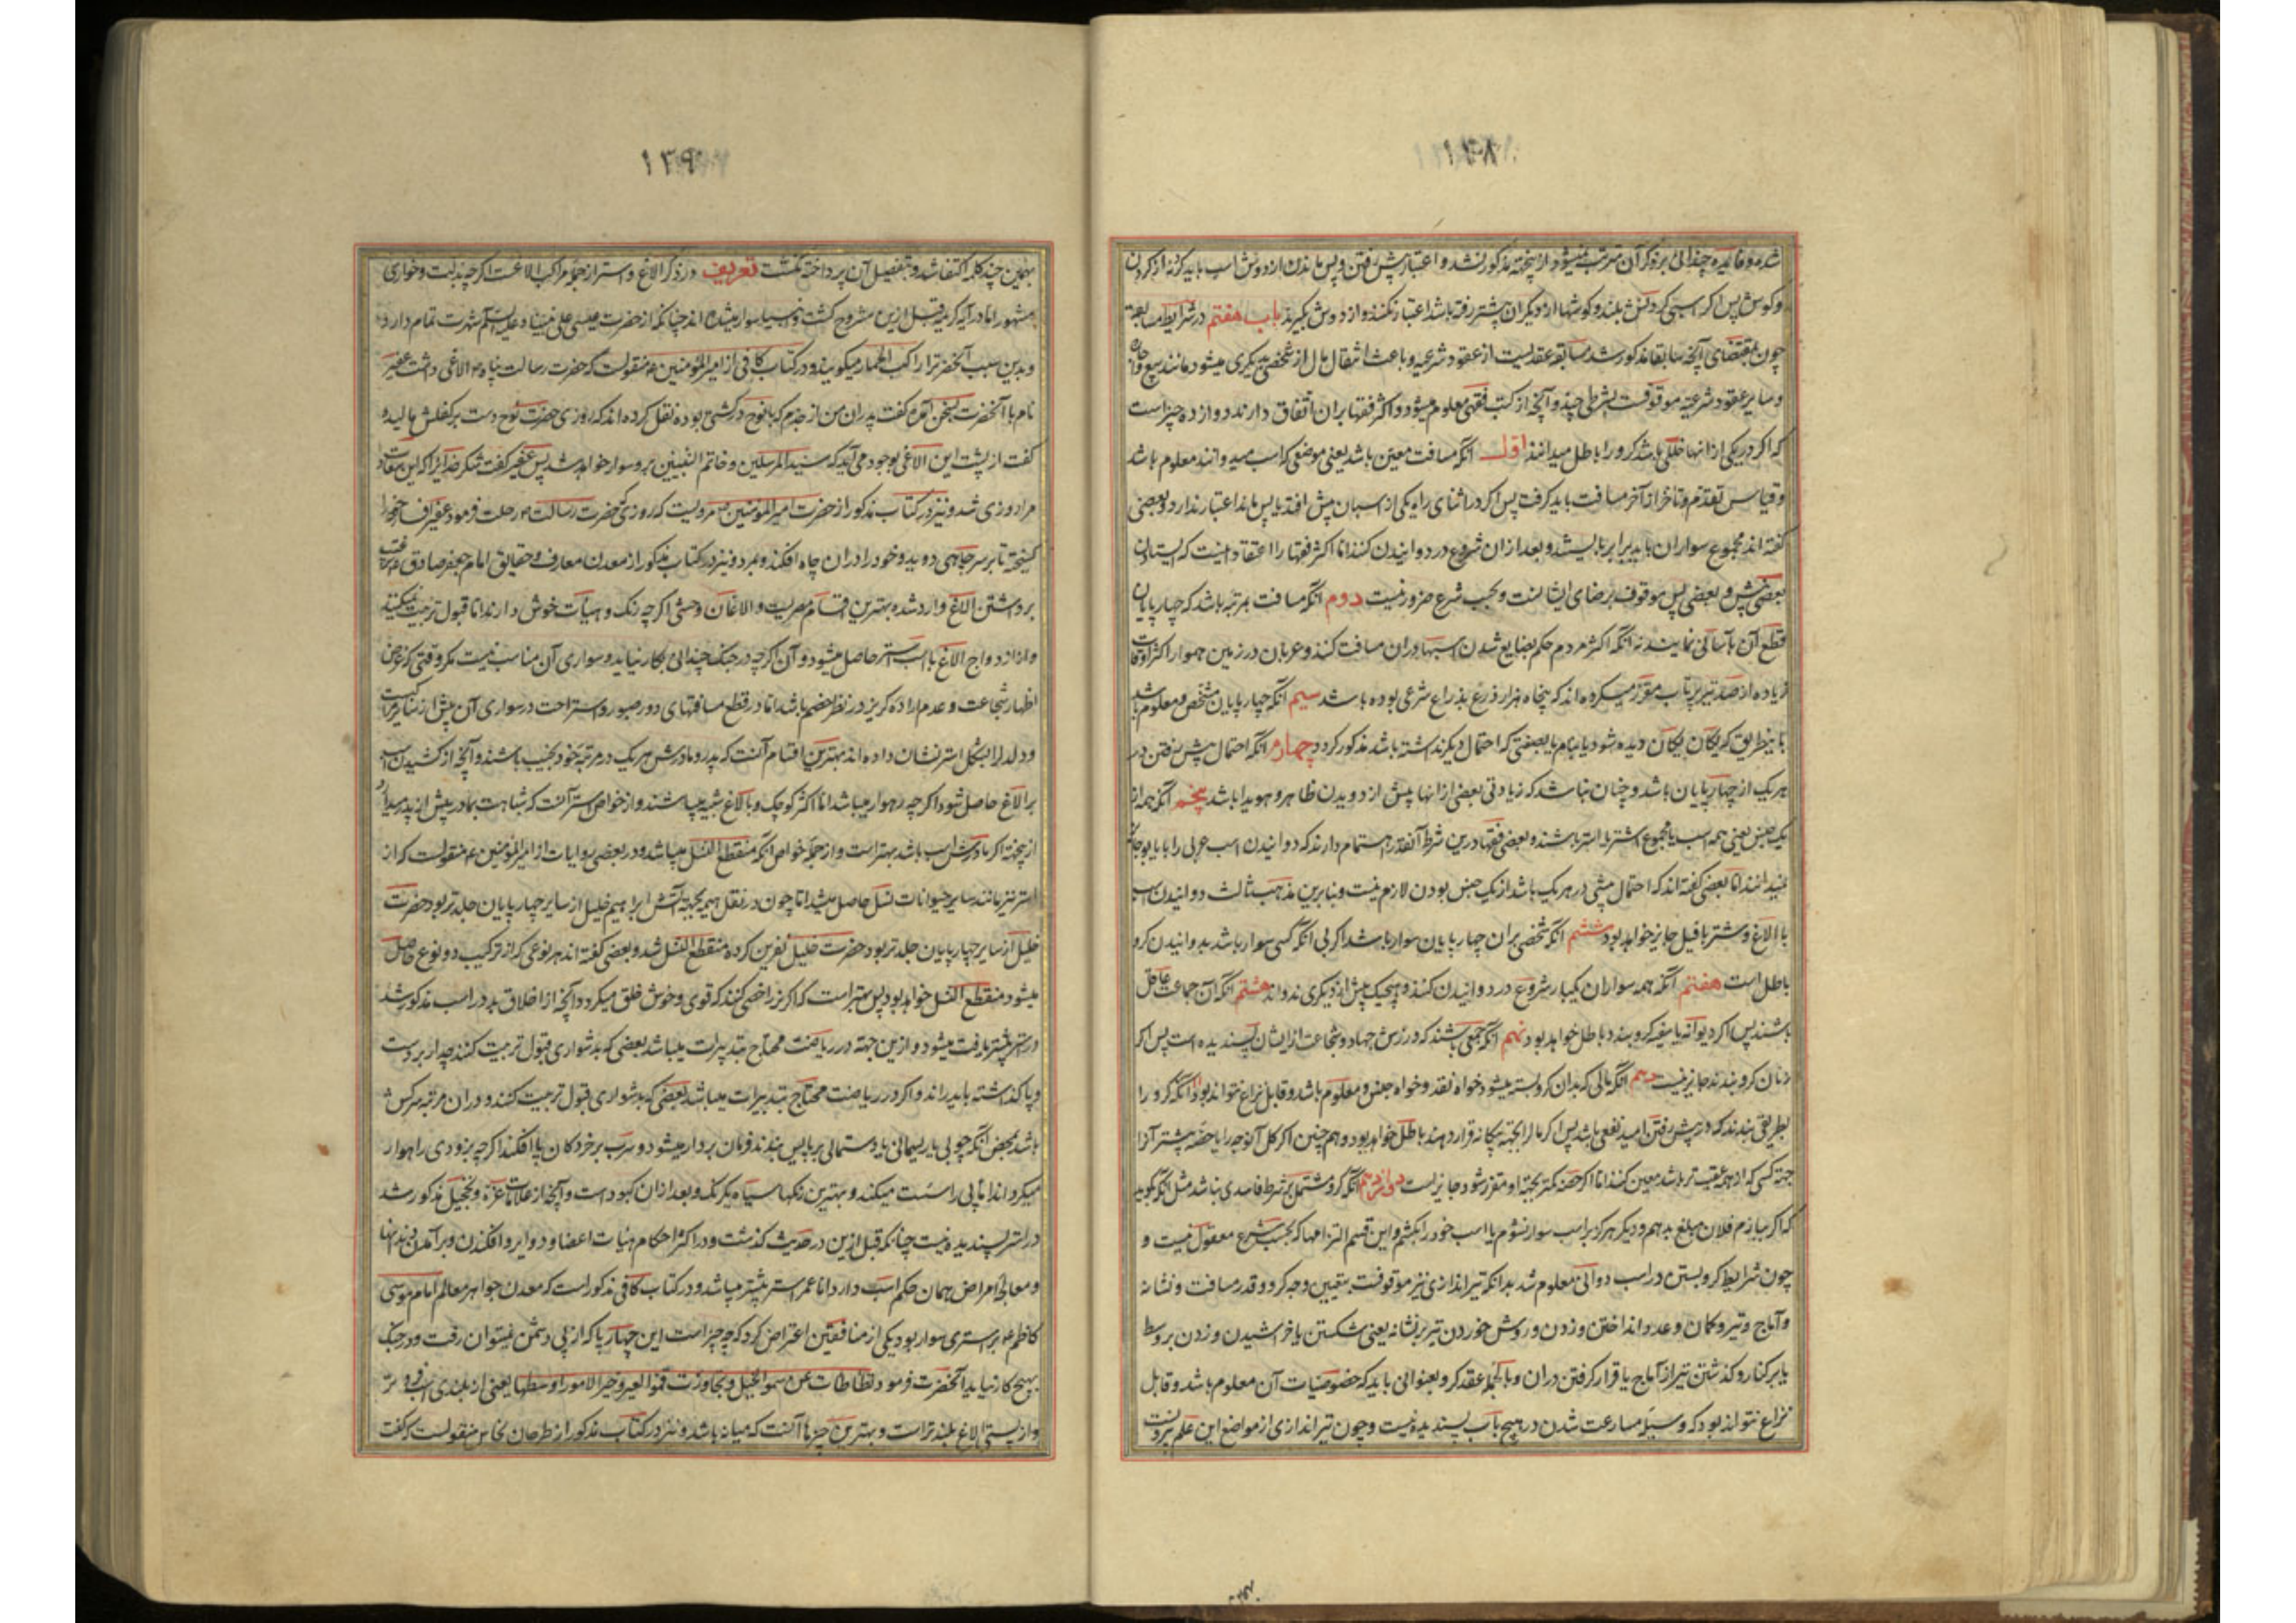 ۱۳۸
شده و فایده چندانی بر ذکر آن مترتب نمیشود ازینجهة مذکور نشد و اعتبار پیش رفتن و پس ماندن از دوش اسب باید کرد نه از گردن
و گوش پس اگر اسبی گردنش بلند و گوشها از دیگران پیشتر رفته باشد اعتبار نکنند و از دوش بگیرند باب هفتم در شرایط مسابقه
چون بمقتضای آنچه سابقا مذکور شد مسابقه عقدیست از عقود شرعیه و باعث انتقال مال از شخصی بدیگری میشود مانند بیع و اجاره
و سایر عقود شرعیه موقوفست بشرطی چند و آنچه از کتب فقهی معلوم میشود و اکثر فقها بران اتفاق دارند دوازده چیز است
که اگر در یکی از انها خللی باشد کرو را باطل میدانند اول آنکه مسافت معین باشد یعنی موضعی که اسب میدوانند معلوم باشد
و قیاس تقدم و تاخر از آخر مسافت باید گرفت پس اگر در اثنای راه یکی از اسبان پیش افتد یا پس ماند اعتبار ندارد و بعضی
گفته اند مجموع سواران باید برابر بایستند و بعد ازان شروع در دوانیدن کنند اما اکثر فقها را اعتقاد اینست که ایستادن
بعضی پیش و بعضی پس موقوف برضای ایشانست و بحسب شرع ضرور نیست دوم آنکه مسافت بمرتبه باشد که چهارپایان
قطع آن بآسانی نمایند نه آنکه اکثر مردم حکم بضایع شدن اسبها دران مسافت کنند و عربان در زمین هموار اکثر اوقات
زیاده از صد تیر پرتاب مقرر میکرده اند که پنجاه هزار ذرع بذراع شرعی بوده باشد سیم آنکه چهارپایان مشخص و معلوم باشند
باینطریق که یکان یکان دیده شود یا بنام یا بصفتی که احتمال دیگر نداشته باشد مذکور گردد چهارم آنکه احتمال پیش رفتن در
هر یک از چهارپایان باشد و چنان نباشد که زیادتی بعضی از انها پیش از دویدن ظاهر و هویدا باشد پنجم آنکه همه از
یک جنس یعنی همه اسب یا مجموع اشتر یا استر باشند و بعضی فقها درین شرط آنقدر اهتمام دارند که دوانیدن اسب عربی را با یابو جایز
نمیدانند اما بعضی گفته اند که احتمال پیشی در هر یک باشد از یک جنس بودن لازم نیست و بنابرین مذهب ثالث دوانیدن اسب
با الاغ و شتر با فیل جایز خواهد بود ششم آنکه شخصی بران چهارپایان سوار باشد اگر بی آنکه کسی سوار باشد بدوانیدن کرو
باطل است هفتم آنکه همه سواران یکبار شروع در دوانیدن کنند و هیچیک پیش از دیگری ندواند هشتم آنکه آن جماعت عاقل
باشند پس اگر دیوانه یا سفیه کرو بندد باطل خواهد بود نهم آنکه جمعی باشند که ورزش جهاد و شجاعت از ایشان پسندیده است پس اگر
زنان کرو بندند جایز نیست دهم آنکه مالی که بدان کرو بسته میشود خواه نقد و خواه جنس معلوم باشد و قابل نزاع نتواند بود آنکه کرو را
بطریقی بندند که در پیش رفتن امید نفعی باشد پس اگر مال را بجهة بیگانه قرار دهند باطل خواهد بود و هم چنین اگر کل آنوجه را یا حصه بیشتر آنرا
جهة کسی که از همه عقب تر باشد معین کنند اما اگر حصه کمتر بجهة او مقرر شود جایز است دوازدهم آنکه کرو مشتمل بر شرط فاسدی نباشد مثل آنکه گوید
که اگر ببازم فلان مبلغ بدهم و دیگر هرگز بر اسب سوار نشوم یا اسب خود را بکشم و این قسم التزامها که بحسب شرع معقول نیست و
چون شرایط کرو بستن در اسب دوانی معلوم شد بدانکه تیراندازی نیز موقوفست بتعیین وجه کرو و قدر مسافت و نشانه
و آماج و تیر و کمان و عدد انداختن و زدن و روش خوردن تیر بر نشانه یعنی شکستن یا خراشیدن و زدن بر وسط
یا بر کنار و گذشتن تیر از آماج یا قرار گرفتن دران و بالجمله عقد کرو بعنوانی باید که خصوصیات آن معلوم باشد و قابل
نزاع نتواند بود که وسیله مسارعت شدن در هیچ باب پسندیده نیست و چون تیراندازی از مواضع این علم بیرونست
۱۳۹
بهمین چند کلمه اکتفا شد و بتفصیل آن پرداخته نگشت تعریف در ذکر الاغ و استر از جمله مراکب الاغست اگرچه بذلت و خواری
مشهور اما در آیه کریمه قبل ازین مشروح گشت و انبیا سوار میشده اند چنانکه از حضرت عیسی علی نبینا و علیه السلم شهرت تمام دارد
و بدین سبب آنحضرترا راکب الحمار میگویند و در کتاب کافی از امیرالمؤمنین ع منقولست که حضرت رسالت پناه ص الاغی داشت عفیر
نام با آنحضرت بسخن آمده گفت پدران من از جدم که با نوح در کشتی بوده نقل کرده اند که روزی حضرت نوح دست بر کفلش مالیده
گفت از پشت این الاغی بوجود می آید که سیدالمرسلین و خاتم النبیین برو سوار خواهد شد پس عفیر گفت شکر خدایرا که این سعادت
مرا روزی شد و نیز در کتاب مذکور از حضرت امیرالمؤمنین ع مرویست که روزی که حضرت رسالت ص رحلت فرمود عفیر افسار خود را
گسیخته تا بر سر چاهی دوید و خود را دران چاه افکند و بمرد و نیز در کتاب مذکور از معدن معارف و حقایق امام جعفر صادق ع
برداشتن الاغ وارد شده بهترین اقسام مصریست و الاغان وحشی اگرچه رنگ و هیئات خوش دارند اما قبول تربیت نمیکنند
و از ازدواج الاغ با اسب استر حاصل میشود و آن اگرچه در جنگ چندانی بکار نیاید و سواری آن مناسب نیست مگر وقتی که غرض
اظهار شجاعت و عدم اراده گریز در نظر خصم باشد اما در قطع مسافتهای دور صبور و استراحت در سواری آن بیش از سایر مراکبست
و دلدل را بشکل استر نشان داده اند بهترین اقسام آنست که پدر و مادرش هر یک در مرتبه خود نجیب باشند و آنچه از کشیدن اسب
بر الاغ حاصل شود اگرچه رهوار میباشد اما اکثر کوچک و بالاغ شبیه میباشند و از خواص استر آنست که شباهت بمادر بیش از پدر میدارد
ازینجهة اگر مادرش اسب باشد بهتر است و از جمله خواص آنکه منقطع النسل میباشد و در بعضی روایات از امیرالمؤمنین ع منقولست که از
استر نیز مانند سایر حیوانات نسل حاصل میشد اما چون در نقل هیمه بجهة آتش ابراهیم خلیل از سایر چهارپایان جلدتر بود حضرت
خلیل از سایر چهارپایان جلدتر بود حضرت خلیل نفرین کرده منقطع النسل شد و بعضی گفته اند هر نوعی که از ترکیب دو نوع حاصل
میشود منقطع النسل خواهد بود پس بهتر است که اگر نر اخصی کنند که قوی و خوش خلق میگردد و آنچه از اخلاق بد در اسب مذکور شد
در استر بیشتر یافت میشود و ازین جهة در ریاضت محتاج بتدبیرات میباشد بعضی که بدشواری قبول تربیت کنند چدار بر دست
و پا گذاشته باید راند و اگر در ریاضت محتاج بتدبیرات میباشد بعضی که بدشواری قبول تربیت کنند و دران مرتبه سرکش
باشد بمحض آنکه چوبی یا ریسمانی یا دستمالی بر پایش بندند فرمان بردار میشود و سرب بر خردکان پا افکند اگرچه بزودی راهوار
میگردد اما پای را سست میکند و بهترین رنگها سیاه یکرنگ و بعد ازان کبود است و آنچه از علامات غره و تحجیل مذکور شد
در استر پسندیده نیست چنانکه قبل ازین در حدیث گذشت و در اکثر احکام هیئات اعضا و دوایر و افکندن و برآمدن دندانها
و معالجه امراض همان حکم اسب دارد اما عمر استر بیشتر میباشد و در کتاب کافی مذکور است که معدن جواهر معالم امام موسی
کاظم ع بر استری سوار بود یکی از منافقین اعتراض کرد که چه چیز است این چهارپا که از پی دشمن نمیتوان رفت و در جنگ
بهیچ کار نیاید آنحضرت فرمود تطاطات عن سمو الخیل و تجاوزت قمو العیر و خیر الامور اوسطها یعنی از بلندی اسب فروتر
و از پستی الاغ بلندتر است و بهترین چیزها آنست که میانه باشد و نیز در کتاب مذکور از طرخان نخاس منقولست که گفت